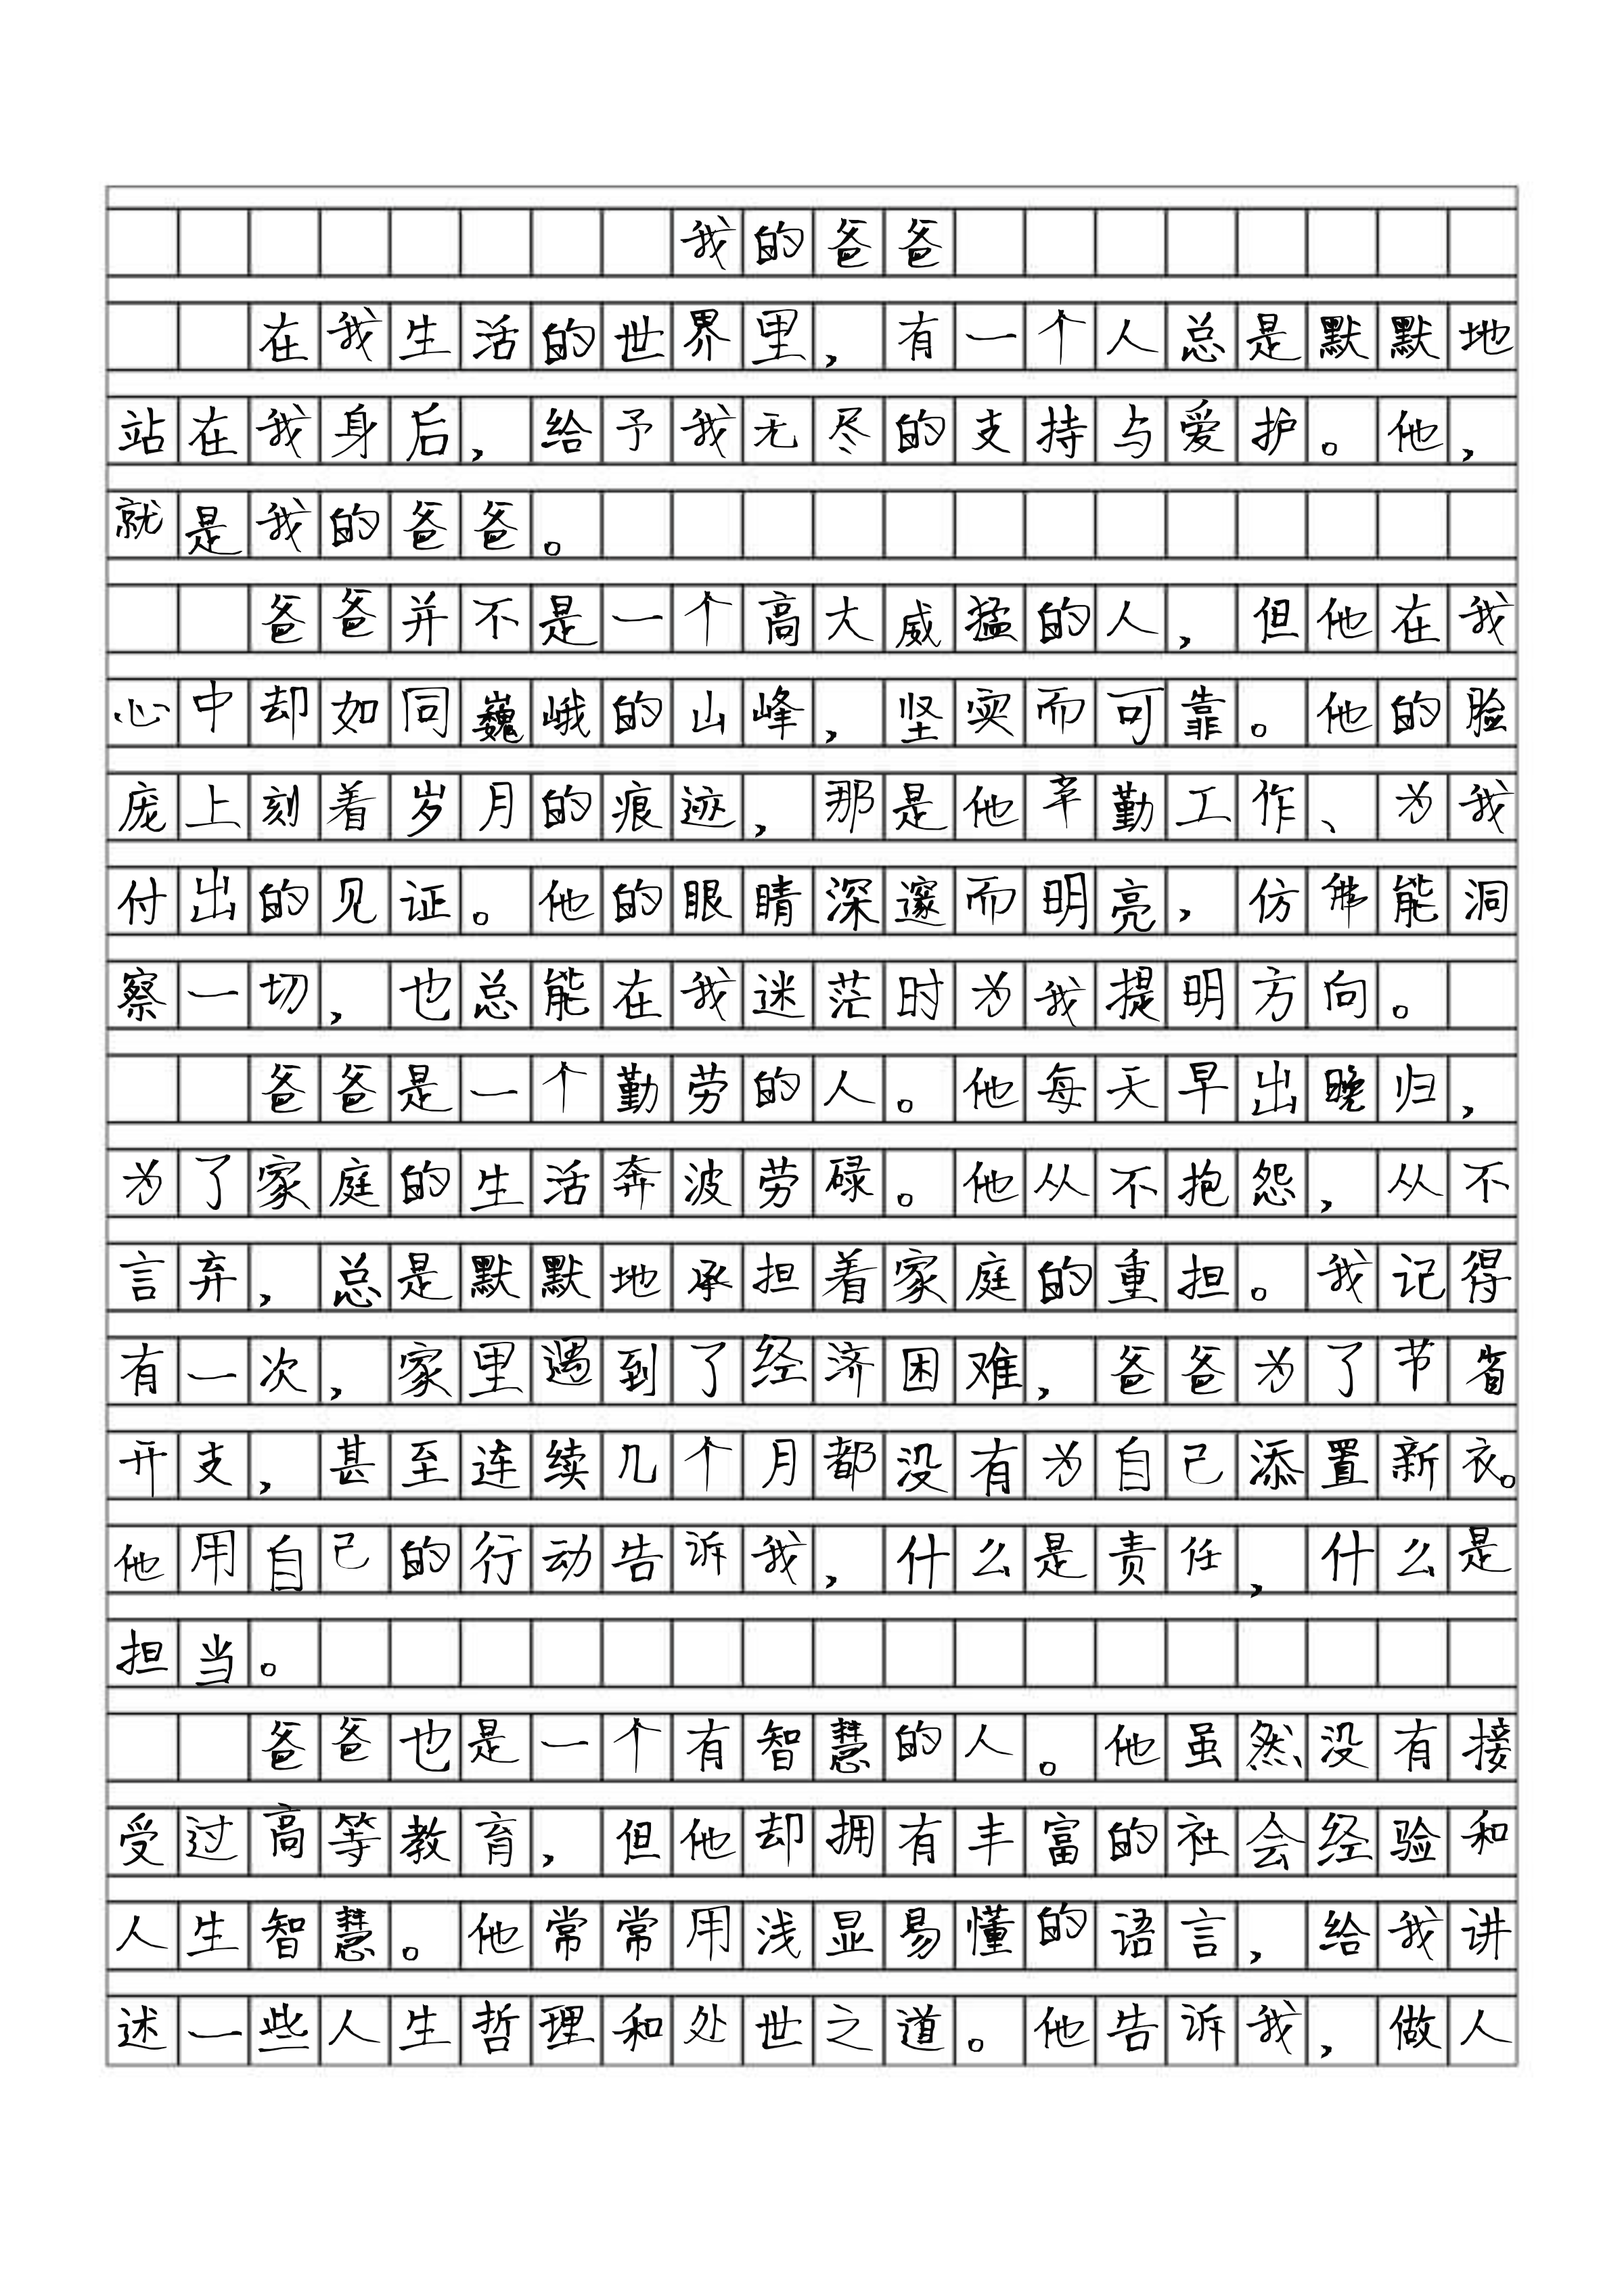 我的爸爸
在我生活的世界里，有一个人总是默默地
站在我身后，给予我无尽的支持与爱护。他，
就是我的爸爸。
爸爸并不是一个高大威猛的人，但他在我
心中却如同巍峨的山峰，坚实而可靠。他的脸
庞上刻着岁月的痕迹，那是他辛勤工作、为我
付出的见证。他的眼睛深邃而明亮，仿佛能洞
察一切，也总能在我迷茫时为我提明方向。
爸爸是一个勤劳的人。他每天早出晚归，
为了家庭的生活奔波劳碌。他从不抱怨，从不
言弃，总是默默地承担着家庭的重担。我记得
有一次，家里遇到了经济困难，爸爸为了节省
开支，甚至连续几个月都没有为自己添置新衣。
他用自己的行动告诉我，什么是责任，什么是
担当。
爸爸也是一个有智慧的人。他虽然没有接
受过高等教育，但他却拥有丰富的社会经验和
人生智慧。他常常用浅显易懂的语言，给我讲
述一些人生哲理和处世之道。他告诉我，做人